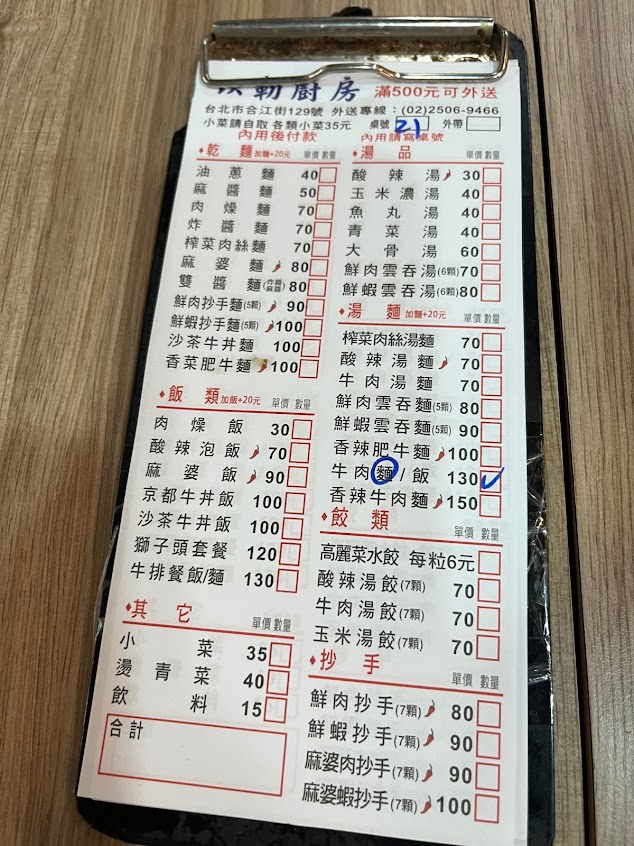 勒廚房 滿500元可外送
台北市合江街129號 外送專線：(02)2506-9466
小菜請自取 各類小菜35元 桌號 21 外帶
內用後付款 內用請寫桌號
乾麵 加麵+20元 單價 數量
油蔥麵 40
麻醬麵 50
肉燥麵 70
炸醬麵 70
榨菜肉絲麵 70
麻婆麵 80
雙醬麵(炸醬麻醬) 80
鮮肉抄手麵(5顆) 90
鮮蝦抄手麵(5顆) 100
沙茶牛丼麵 100
香菜肥牛麵 100
飯類 加飯+20元 單價 數量
肉燥飯 30
酸辣泡飯 70
麻婆飯 90
京都牛丼飯 100
沙茶牛丼飯 100
獅子頭套餐 120
牛排餐飯/麵 130
其它 單價 數量
小菜 35
燙青菜 40
飲料 15
合計
湯品 單價 數量
酸辣湯 30
玉米濃湯 40
魚丸湯 40
青菜湯 40
大骨湯 60
鮮肉雲吞湯(6顆) 70
鮮蝦雲吞湯(6顆) 80
湯麵 加麵+20元 單價 數量
榨菜肉絲湯麵 70
酸辣湯麵 70
牛肉湯麵 70
鮮肉雲吞麵(5顆) 80
鮮蝦雲吞麵(5顆) 90
香辣肥牛麵 100
牛肉麵/飯 130 ✓
香辣牛肉麵 150
餃類 單價 數量
高麗菜水餃 每粒6元
酸辣湯餃(7顆) 70
牛肉湯餃(7顆) 70
玉米湯餃(7顆) 70
抄手 單價 數量
鮮肉抄手(7顆) 80
鮮蝦抄手(7顆) 90
麻婆肉抄手(7顆) 90
麻婆蝦抄手(7顆) 100